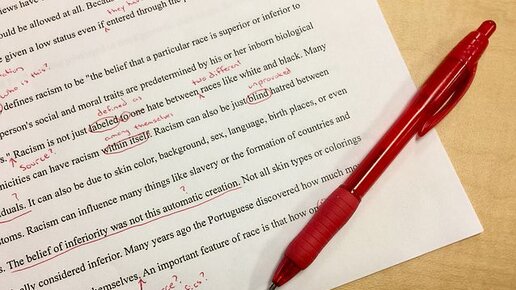 iews have
they ha
ould be allowed at all. Becau
e given a low status even if entered through the p
who is this?
defines racism to be "the belief that a particular race is superior or inferior to
person's social and moral traits are predetermined by his or her inborn biological
defined as
two different
unprovoked
s." Racism is not just labeled to one hate between races like white and black. Many
Source?
among themselves
nicities can have racism within itself. Racism can also be just blind hatred between
duals. It can also be due to skin color, background, sex, language, birth places, or even
?
toms. Racism can influence many things like slavery or the formation of countries and
?
s. The belief of inferiority was not this automatic creation. Not all skin types or colorings
ally considered inferior. Many years ago the Portuguese discovered how much mo
hemselves. An important feature of race is that how on
rce?